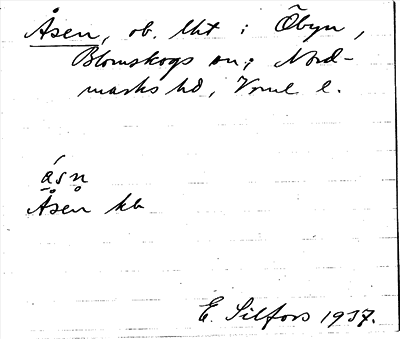 Åsen, ob. lht i Õbyn,
Blomskogs sn; Nord-
marks hd, Vrml l.
åsn
Åsen kb
E. Silfors 1937.